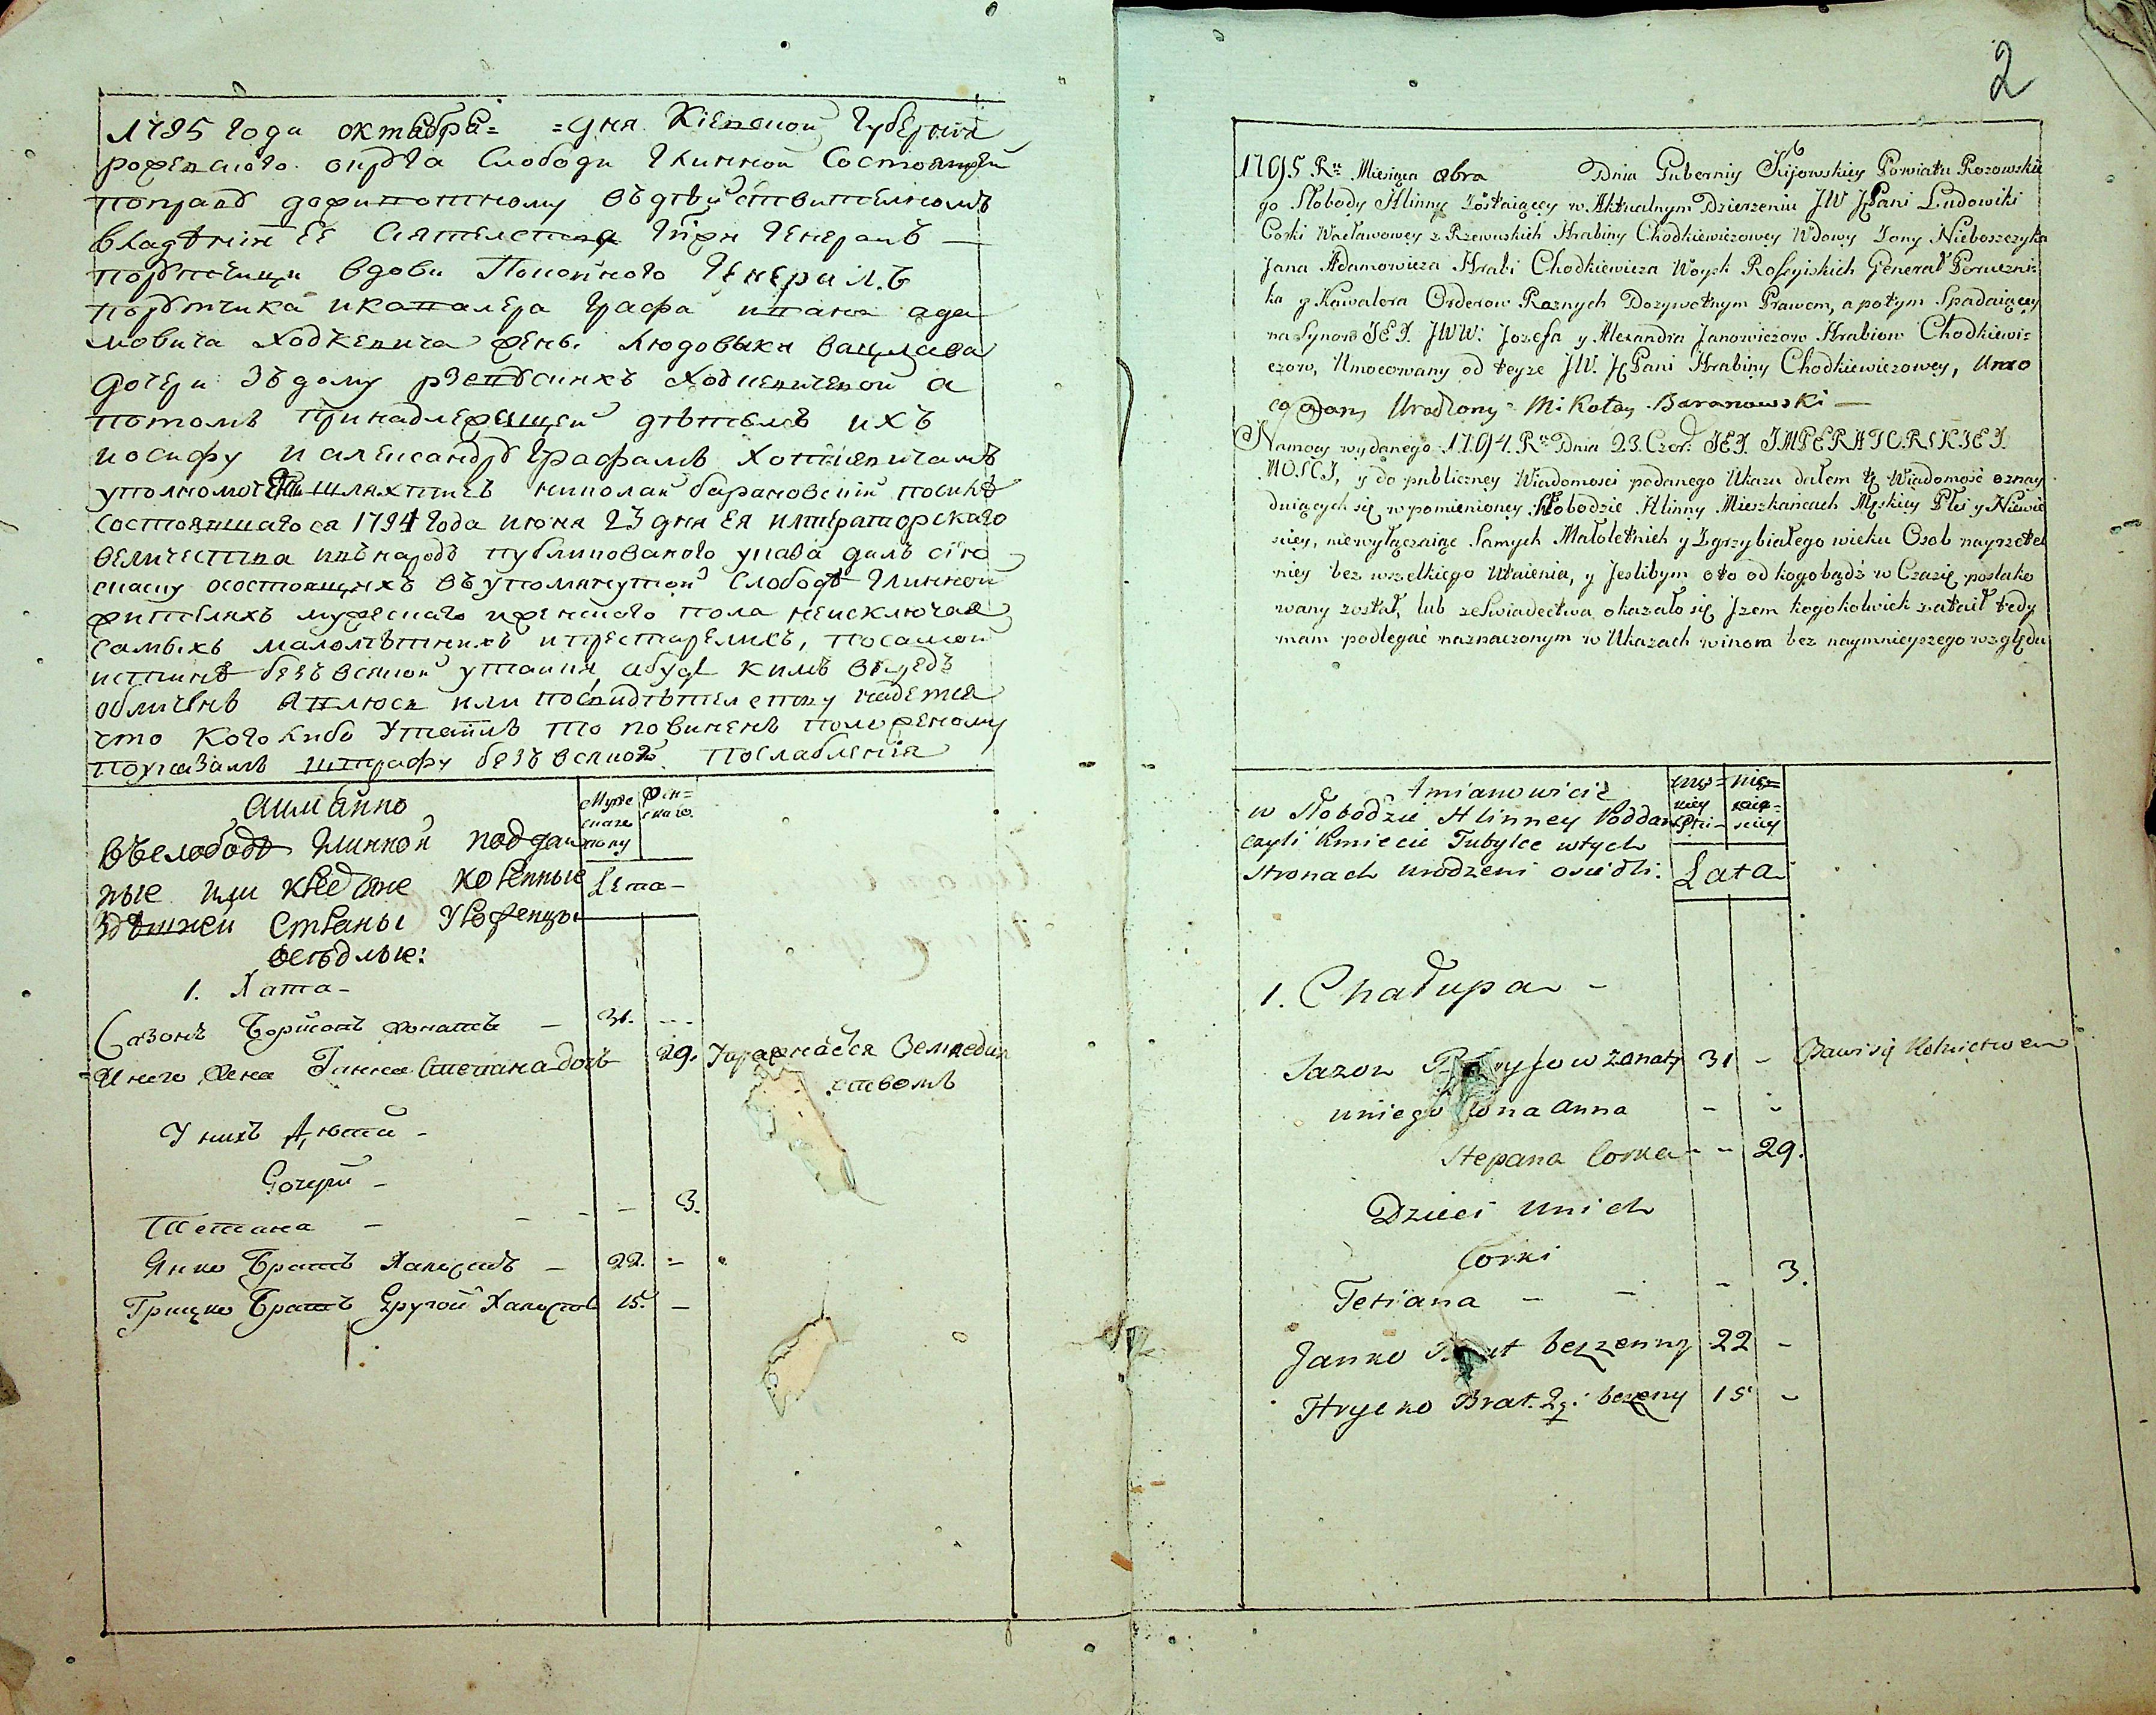 1795 года октабра= =дня Кіевской Губерніи
рожевского округа Слободи Глинной Состоящей
поправу дожывотному въ действителномъ
владѣніи Ея Сиятелства Г:при Генералъ —
порутчици вдови Покойного Генерал.ъ
порутчика икавалера Графа ивана ада
мовича Ходкевича жены Людовыки вацлава
дочери Зъ дому рзевускихъ Ходкевичевой а
потомъ принадлежащей дѣтемъ ихъ
иосифу и александру Графамъ Хоткевичамъ
уполномоче шляхтичъ николай барановскій посилѣ
состоявшагося 1794 года июня 23 дня Ея императорскаго
величества въ народъ публикованого указа далъ сію
скаску осостоящихъ въ упомянутой Слободѣ Глинной
жителяхъ мужескаго иженского пола неисключая
самыхъ малолѣтнихъ ипрестарелихъ, посамой
истинѣ безъ всякой утайки, абуде кимъ впредъ
обличенъ явлюся или посвидѣтелству найдется
что кого либо Утаилъ то повиненъ положеному
поуказамъ штрафу безъ всякого послабленія
аимянно
въ слободѣ Глинной поддан
ные или кмѣтяне коренные
здѣшней Страны Урожденцы
оселые:
Муже
скаго
полу
жен=
скаго.
Лета-
1. Хата-
Сазонъ жонатъ — 31. --
У него жена Ганна Степана дочь 29. Упражнаеся Земледел
ствомъ
У нихъ Дѣти -
Дочери -
Тетиана - - - - 3.
Янко Братъ Холостъ — 22. =
Грицко Братъ Другой Холостъ 15. —
2
1795 Rᵘ Miesiąca 8bra Dnia Guberniy Kijowskiey Powiatu Rozowskie
go Słobody Hlinny zostaiącey w Aktualnym Dzierzeniu JW JPani Ludowiki
Corki Wacławowey z Rzewuskich Hrabiny Chodkiewiczowey Wdowy Żony Nieboszczyka
Jana Adamowicza Hrabi Chodkiewicza Woysk Rossyiskich Generał Poruczni=
ka y Kawalera Orderow Roznych Dozywotnym Prawem, a potym Spadaiącey
na Synow JEJ JWW: Jozefa y Alexandra Janowiczow Hrabiow Chodkiewi=
czow, Umocowany od teyze JW. JPani Hrabiny Chodkiewiczowey, Umo
cowany Urodzony Mikołay Baranowski —
Namocy wydanego 1794. Rᵘ Dnia 23. Czer: JEJ IMPERATORSKIEJ
MOSCI, y do publiczney Wiadomosci podanego Ukazu dałem tę Wiadomość oznay
duiących się w pomienioney Słobodzie Hlinny Mieszkańcach Męskiey Płci y Niewie
sciey, niewyłączaiąc Samych Małoletnich y Zgrzybiałego wieku Osob nayrzetel
niey bez wszelkiego Utaienia, y Jeslibym oto od kogobądź w Czasię poslako
wany został, lub ze Swiadectwa okazało się Jzem kogokolwiek zataił tedy
mam podlegać naznaczonym w Ukazach winom bez naymnieyszego względu
Amianowicie
w Słobodzie Hlinney Poddani
czyli Kmiecie Tubylce wtych
Stronach urodzeni osiedli.
męs=
kiey
płci
nie=
wie-
sciey
Lata
1. Chałupa -
Sazon zonaty 31 - Bawi się Rolnictwem
uniego Zona Anna - -
Stepana Corka - - 29.
Dzieci unich
Corki
Tetiana - - - 3.
Janko Brat bezzenny 22 -
Hrycko Brat. 2gi bezeny 15 -